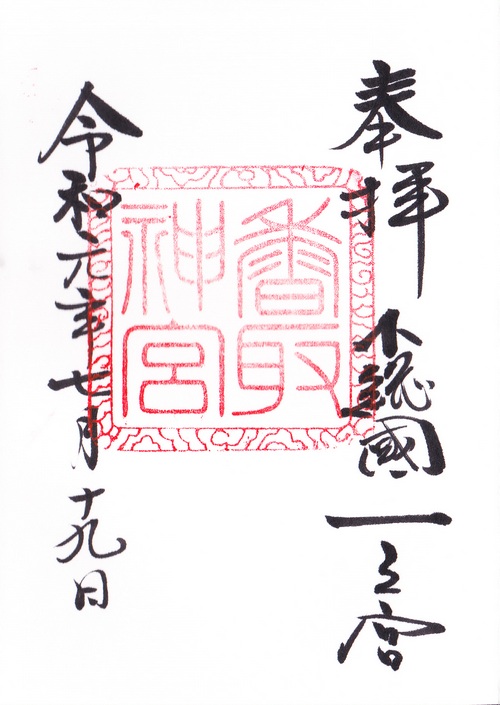 奉拝 下総國一之宮
香取
神宮
令和元年七月十九日